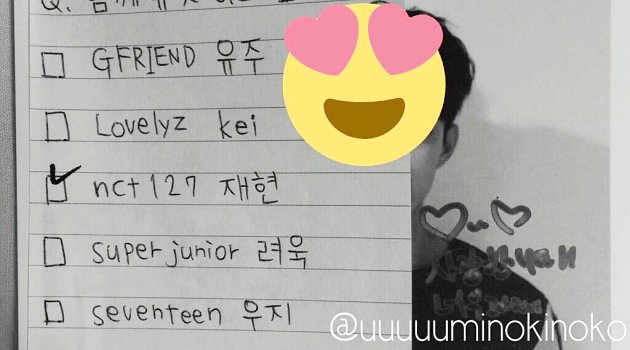 Q.
GFRIEND 유주
Lovelyz kei
nct 127 재현
super junior 려욱
seventeen 우지
@uuuuuminokinoko